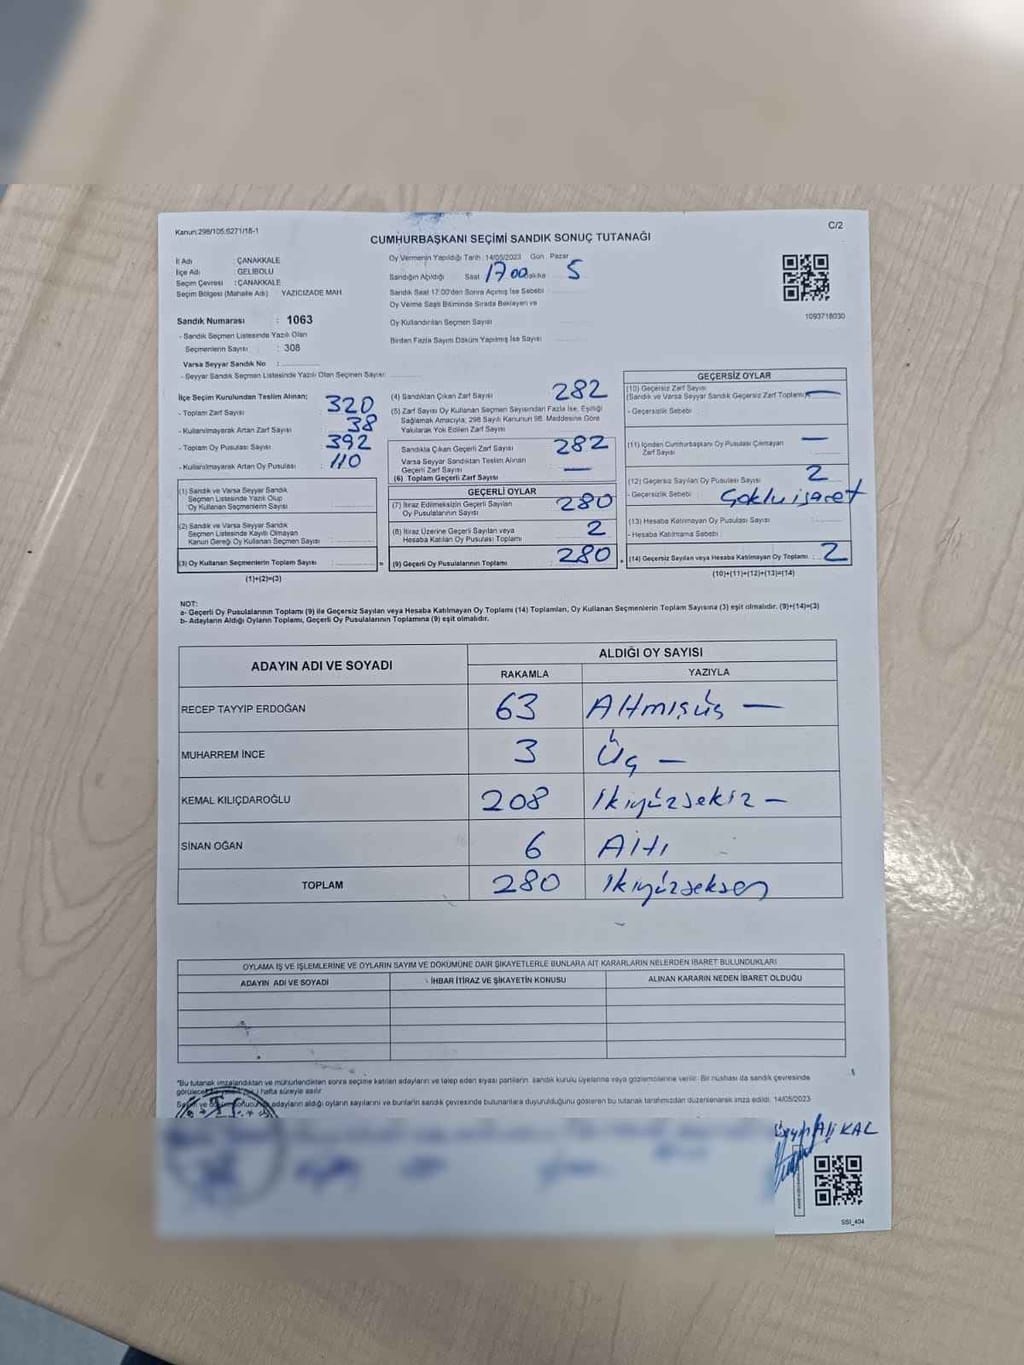 Kanun:298/105;6271/18-1
C/2
CUMHURBAŞKANI SEÇİMİ SANDIK SONUÇ TUTANAĞI
İl Adı : ÇANAKKALE
İlçe Adı : GELİBOLU
Seçim Çevresi : ÇANAKKALE
Seçim Bölgesi (Mahalle Adı) YAZICIZADE MAH
Sandık Numarası : 1063
- Sandık Seçmen Listesinde Yazılı Olan
Seçmenlerin Sayısı : 308
Varsa Seyyar Sandık No :
- Seyyar Sandık Seçmen Listesinde Yazılı Olan Seçmen Sayısı:
Oy Vermenin Yapıldığı Tarih : 14/05/2023 Gün : Pazar
Sandığın Açıldığı Saat 17 00 Dakika 5
Sandık Saat 17.00'den Sonra Açılmış İse Sebebi
Oy Verme Saati Bitiminde Sırada Bekleyen ve
Oy Kullandırılan Seçmen Sayısı
Birden Fazla Sayım Döküm Yapılmış İse Sayısı
1093718030
İlçe Seçim Kurulundan Teslim Alınan;
- Toplam Zarf Sayısı : 320
- Kullanılmayarak Artan Zarf Sayısı : 38
- Toplam Oy Pusulası Sayısı : 392
- Kullanılmayarak Artan Oy Pusulası : 110
(1) Sandık ve Varsa Seyyar Sandık
Seçmen Listesinde Yazılı Olup
Oy Kullanan Seçmenlerin Sayısı :
(2) Sandık ve Varsa Seyyar Sandık
Seçmen Listesinde Kayıtlı Olmayan
Kanun Gereği Oy Kullanan Seçmen Sayısı :
(3) Oy Kullanan Seçmenlerin Toplam Sayısı :
(1)+(2)=(3)
(4) Sandıktan Çıkan Zarf Sayısı 282
(5) Zarf Sayısı Oy Kullanan Seçmen Sayısından Fazla İse, Eşitliği
Sağlamak Amacıyla; 298 Sayılı Kanunun 98. Maddesine Göre
Yakılarak Yok Edilen Zarf Sayısı
Sandıkta Çıkan Geçerli Zarf Sayısı 282
Varsa Seyyar Sandıktan Teslim Alınan
Geçerli Zarf Sayısı —
(6) Toplam Geçerli Zarf Sayısı
GEÇERLİ OYLAR
(7) İtiraz Edilmeksizin Geçerli Sayılan
Oy Pusulalarının Sayısı 280
(8) İtiraz Üzerine Geçerli Sayılan veya
Hesaba Katılan Oy Pusulası Toplamı 2
(9) Geçerli Oy Pusulalarının Toplamı 280
GEÇERSİZ OYLAR
(10) Geçersiz Zarf Sayısı
(Sandık ve Varsa Seyyar Sandık Geçersiz Zarf Toplamı) —
- Geçersizlik Sebebi
(11) İçinden Cumhurbaşkanı Oy Pusulası Çıkmayan
Zarf Sayısı —
(12) Geçersiz Sayılan Oy Pusulası Sayısı 2
- Geçersizlik Sebebi : Çoklu işaret
(13) Hesaba Katılmayan Oy Pusulası Sayısı
- Hesaba Katılmama Sebebi
(14) Geçersiz Sayılan veya Hesaba Katılmayan Oy Toplamı : 2
(10)+(11)+(12)+(13)=(14)
NOT:
a- Geçerli Oy Pusulalarının Toplamı (9) ile Geçersiz Sayılan veya Hesaba Katılmayan Oy Toplamı (14) Toplamları, Oy Kullanan Seçmenlerin Toplam Sayısına (3) eşit olmalıdır. (9)+(14)=(3)
b- Adayların Aldığı Oyların Toplamı, Geçerli Oy Pusulalarının Toplamına (9) eşit olmalıdır.
ADAYIN ADI VE SOYADI
ALDIĞI OY SAYISI
RAKAMLA YAZIYLA
RECEP TAYYİP ERDOĞAN 63 Altmışüş —
MUHARREM İNCE 3 Üç —
KEMAL KILIÇDAROĞLU 208 İkiyüzsekiz —
SİNAN OĞAN 6 Altı
TOPLAM 280 İkiyüzseksen
OYLAMA İŞ VE İŞLEMLERİNE VE OYLARIN SAYIM VE DÖKÜMÜNE DAİR ŞİKAYETLERLE BUNLARA AİT KARARLARIN NELERDEN İBARET BULUNDUKLARI
ADAYIN ADI VE SOYADI
İHBAR İTİRAZ VE ŞİKAYETİN KONUSU
ALINAN KARARIN NEDEN İBARET OLDUĞU
"Bu tutanak imzalandıktan ve mühürlendikten sonra seçime katılan adayların ve talep eden siyasi partilerin sandık kurulu üyelerine veya gözlemcilerine verilir. Bir nüshası da sandık çevresinde
hafta süreyle asılır.
adayların aldığı oyların sayılarını ve bunların sandık çevresinde bulunanlara duyurulduğunu gösteren bu tutanak tarafımızdan düzenlenerek imza edildi. 14/05/2023
Ali KAL
SSI_404